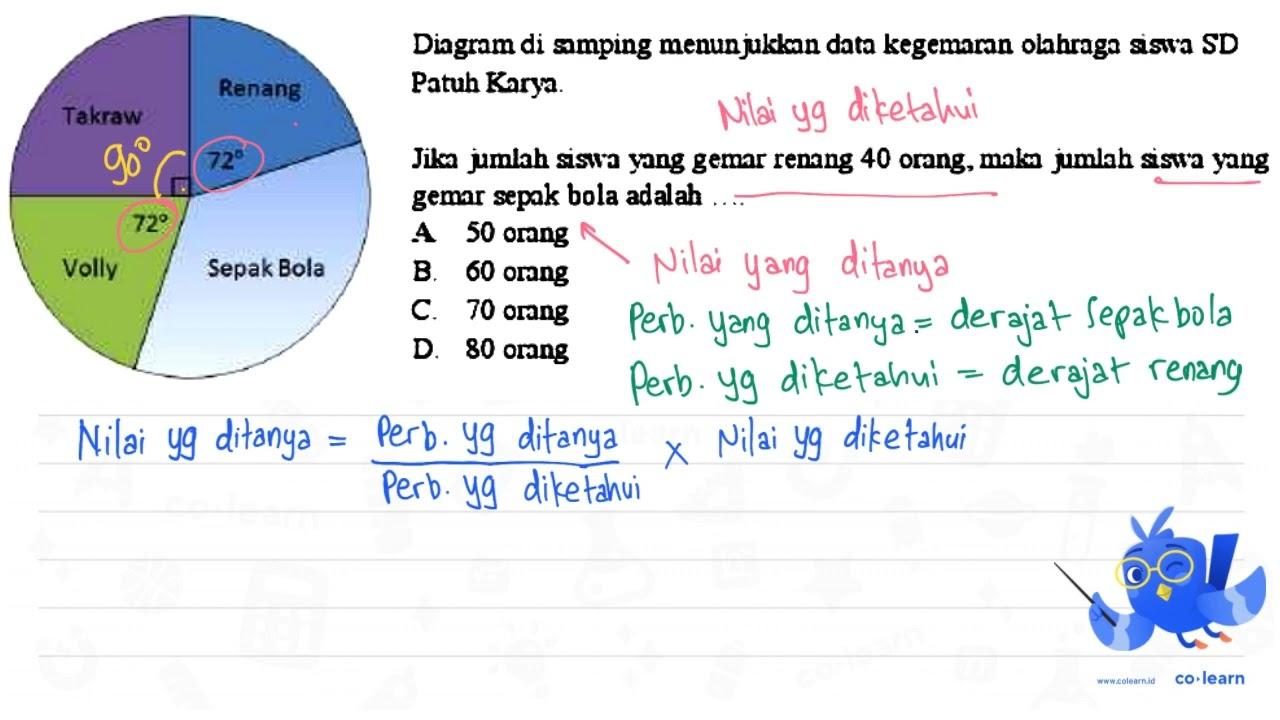 Takraw
Renang
90°
72°
72°
Volly
Sepak Bola
Diagram di samping menunjukkan data kegemaran olahraga siswa SD
Patuh Karya.
Nilai yg diketahui
Jika jumlah siswa yang gemar renang 40 orang, maka jumlah siswa yang
gemar sepak bola adalah ....
A 50 orang
B. 60 orang
C. 70 orang
D. 80 orang
Nilai yang ditanya
Perb. yang ditanya = derajat Sepak bola
Perb. yg diketahui = derajat renang
Nilai yg ditanya = Perb. yg ditanya × Nilai yg diketahui
Perb. yg diketahui
co-learn
co-learn
www.colearn.id co·learn